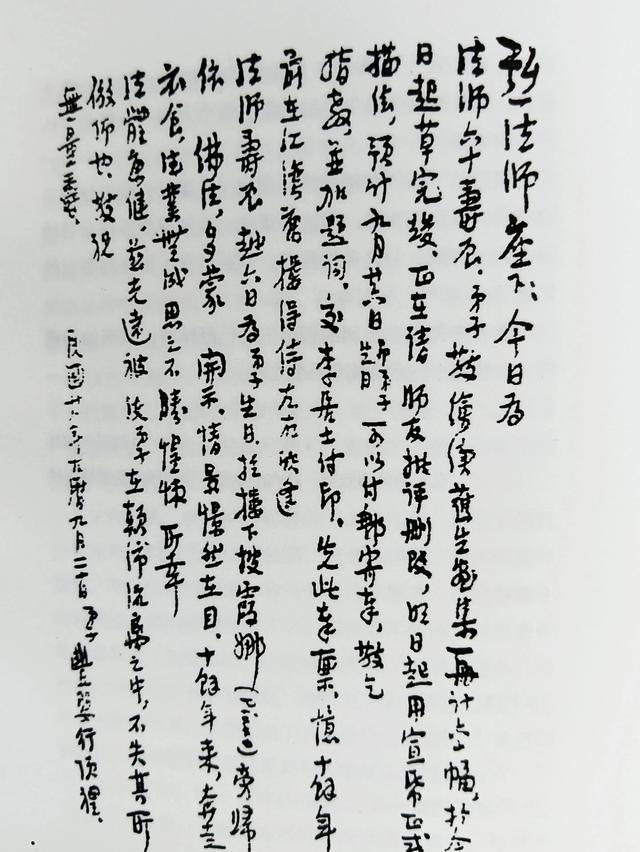 弘一法师座下：今日为
法师六十寿辰，弟子敬绘续护生画集一册计六十幅，于今
日起草完竣，正在请师友批评删改，明日起用宣纸正式
描绘，预计九月廿六日（即弟子生日）可以付邮寄奉，敬乞
指教，并加题词，交李居士付印。先此奉禀。忆十余年
前在江湾旧楼得侍左右欣逢
法师寿辰越六日为弟子生日，于楼下披霞娜（）旁归
依佛法，多蒙开示，情景憬然在目。十余年来，奔走
衣食，德业无成，思之不胜惶悚。所幸
法体康健，慈光远被，使弟子在颠沛流离之中，不失其所
仰也，敬祝
无量寿。
民国廿八年古历九月二十日弟子丰婴行顶礼。